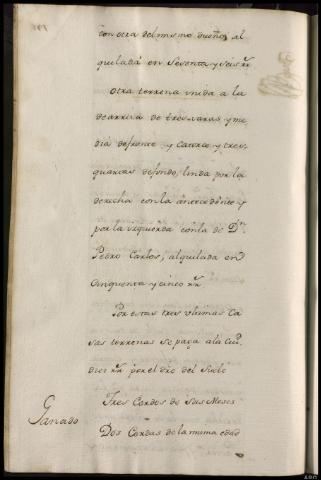 con otra del mismo dueño, al
quilada en Seventa y seis rr
Otra terrena unida a la
de arriva de tres varas y me
dia de frente y catorce y tres
quartas de fondo, linda por la
derecha con la antecedente y
por la izquierda con la de Dn.
Pedro Carlos, alquilada en
Cinquenta y cinco rr.
Por estas tres ultimas Ca
sas terrenas se paga a la Ciud.
diez rr por el dro del Suelo
Ganado
Tres Cerdos de Seis Meses
Dos Cerdas de la misma edad